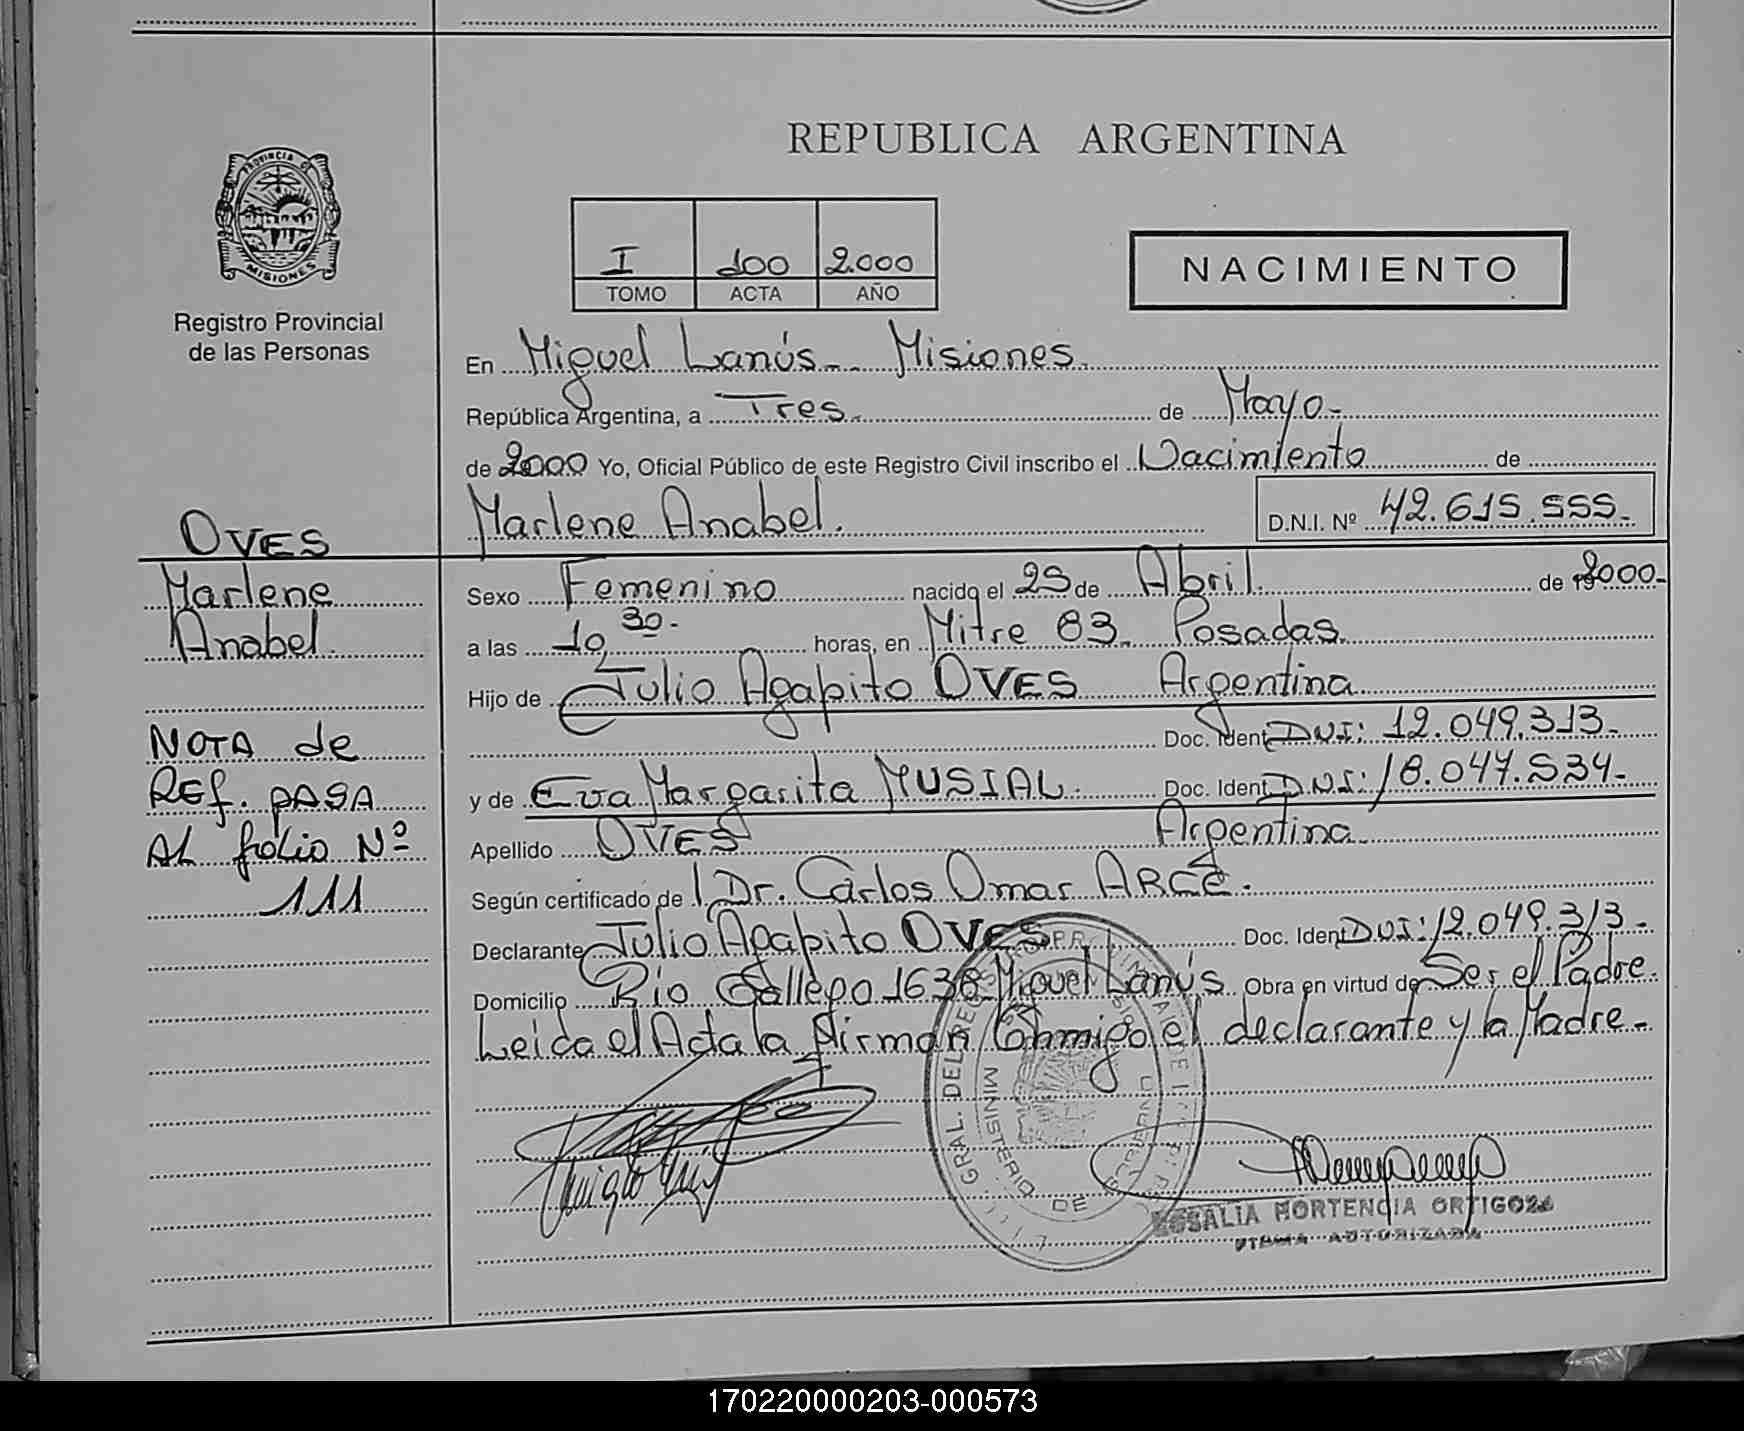 REPUBLICA ARGENTINA
PROVINCIA DE
MISIONES
Registro Provincial
de las Personas
I 100 2.000
TOMO ACTA AÑO
NACIMIENTO
En Miguel Lanús - Misiones.
República Argentina, a Tres. de Mayo.
de 2000 Yo, Oficial Público de este Registro Civil inscribo el Nacimiento de
Marlene Anabel. D.N.I. Nº 42.615.555.
OVES
Marlene
Anabel.
NOTA de
REf. pASA
AL folio Nº
111
Sexo Femenino nacido el 25 de Abril. de 19 2000-
a las 10,30- horas, en Mitre 83. Posadas.
Hijo de Julio Agapito OVES Argentina
Doc. Ident DNI: 12.049.313.
y de Eva Margarita MUSIAL. Doc. Ident D.N.I: 18.047.534-
Apellido OVES Argentina.
Según certificado de Dr. Carlos Omar ARCE.
Declarante Julio Agapito OVES Doc. Ident DNI: 12.049.313-
Domicilio Río Gallego 1638 Miguel Lanús. Obra en virtud de Ser el Padre.
Leida el Acta la firman conmigo el declarante y la Madre-
GRAL. DEL REGISTRO PR
MINISTERIO DE GOBIERNO
ROSALIA HORTENCIA ORTIGOZA
FIRMA AUTORIZADA
170220000203-000573